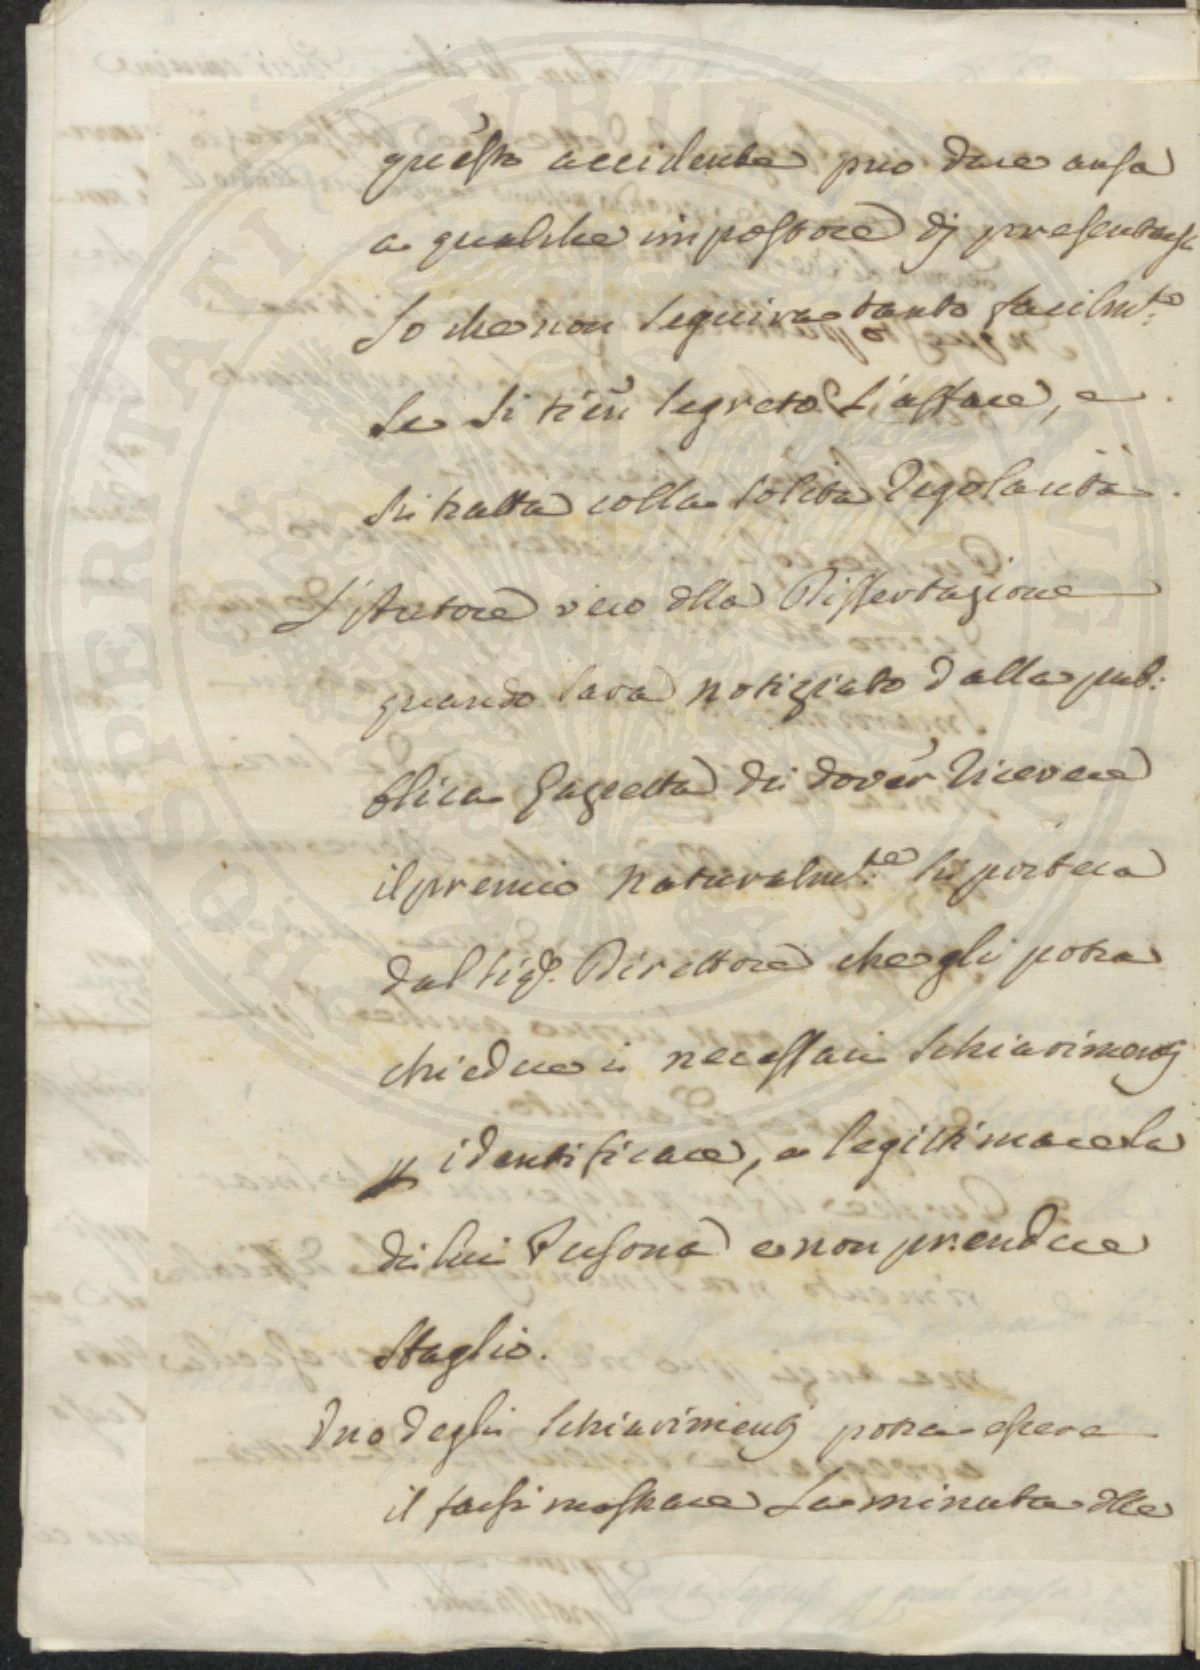 questo accidente puo dare ansa
a qualche impostore dj presentarsi
Lo che non seguira tanto facilmte:
se si tien segreto L'affare, e
si tratta colla solita Regolarità.
L'Autore vero dlla Dissertazione
quando sara notiziato dalla pub:
blica Gazzetta di dover Ricevere
il premio naturalmte: si portera
dal sigr. Direttore che gli potra
chiedere i necessari schiarimenti
identificare, e legittimare la
di lui Persona e non prendere
sbaglio.
Uno degli schiarimenti potra essere
il farsi mostrare La minuta dlla